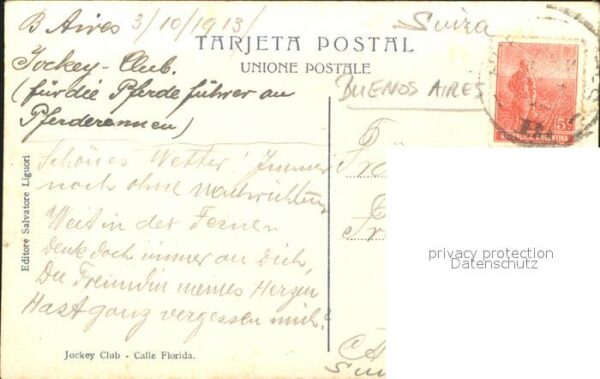 B Aires 3/10/1913/
Suiza
TARJETA POSTAL
UNIONE POSTALE
Jockey-Club.
(für die Pferdeführer an
Pferderennen)
BUENOS AIRES
5c
Editore Salvatore Liguori
Schönes Wetter! Immer
noch ohne Nachrichten,
Weit in der Fernen
Denk doch immer an Dich,
Du Freundin meines Herzen
Hast ganz vergessen mich?
privacy protection
Datenschutz
Jockey Club - Calle Florida.